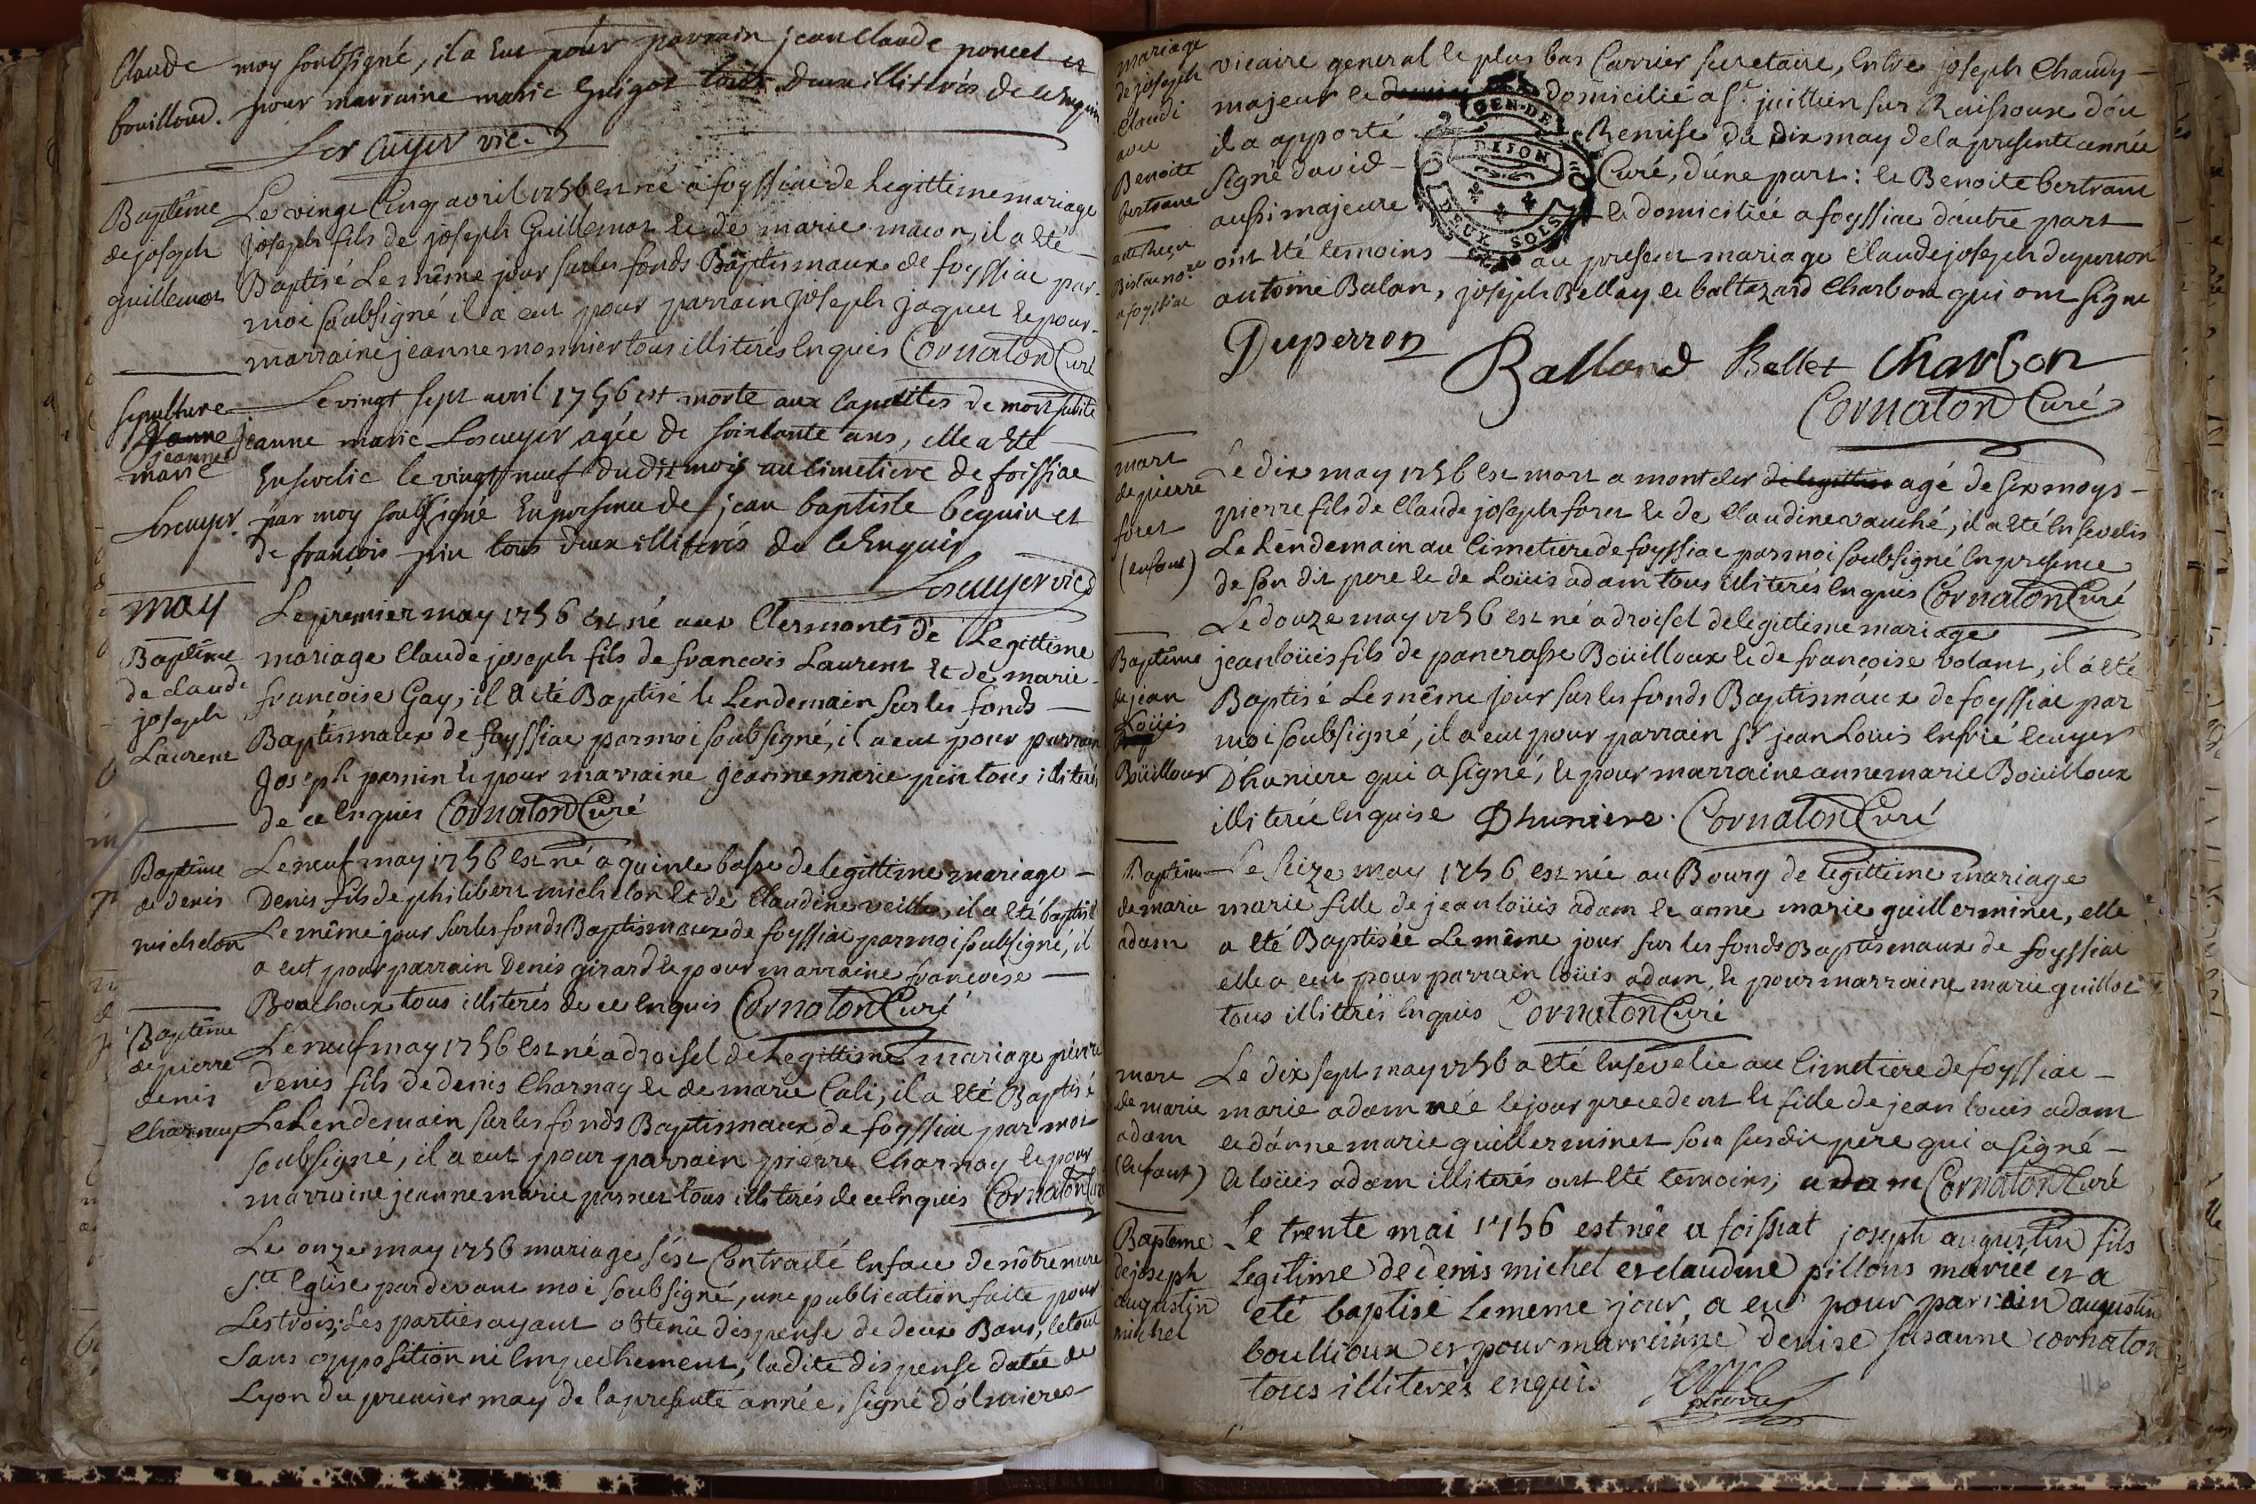 Claude
bouilloud.
moy soubsigné, il a Eut pour parrain jean Claude poncet et
pour marraine marie Guigot tous deux illiterés de ce Enquis
Lescuyer vic.
Baptême
de joseph
guillemot
Le vingt Cinq avril 1756 est né a foyssiac de Legittime mariage
joseph fils de joseph Guillemot et de marie macon, il a eté
Baptisé Le même jour sur les fonds Baptismaux de foyssiac par
moi soubsigné il a eut pour parrain joseph jaquet et pour
marraine jeanne monnier tous illiterés Enquis Cornaton Curé
sepulture
jeanne
marie
Lescuyer.
Le vingt sept avril 1756 est morte aux Capettes de mort subite
jeanne marie Lescuyer agée de soixante ans, elle a eté
Ensevelie le vingt neuf du dit mois au Cimetiere de foissiac
par moy soubsigné En presence de jean baptiste beguin et
de françois piu tous deux illiterés de ce Enquis
Lescuyer vic.
may
Baptême
de claude
joseph
Laurent
Le premier may 1756 est né aux Clermonts de Legittime
mariage Claude joseph fils de francois Laurent et de marie
francoise Gay, il a eté Baptisé le Lendemain sur les fonds
Baptismaux de foyssiac par moi soubsigné, il a eut pour parrain
Joseph pernin et pour marraine jeanne marie piu tous illiterés
de ce Enquis Cornaton Curé
Baptême
de denis
michelon
Le neuf may 1756 est né a quinte basse de legittime mariage
Denis fils de philibert michelon et de Claudine veille, il a eté baptisé
Le même jour sur les fonds Baptismaux de foyssiac par moi soubsigné, il
a eut pour parrain Denis girard et pour marraine francoise
Bouchoux tous illiterés de ce Enquis Cornaton Curé
Baptême
de pierre
denis
Charnay
Le neuf may 1756 est né a droisel de Legittime mariage pierre
denis fils de denis Charnay et de marie Cali, il a eté Baptisé
Le Lendemain sur les fonds Baptismaux de foyssiac par moi
soubsigné, il a eut pour parrain pierre Charnay et pour
marraine jeanne marie perret tous illiterés de ce Enquis Cornaton Curé
Le onze may 1756 mariage s'est Contracté En face de nôtre mere
Ste Eglise pardevant moi soubsigné, une publication faite pour
Les trois; Les parties ayant obtenû dispense de deux Bans, le tout
sans opposition ni Empechement, la dite dispense datée de
Lyon du premier may de la presente année, signé d'olmieres
mariage
de joseph
Claudi
avec
Benoite
bertrant
vicaire general et plus bas Carrier secretaire, Entre joseph Chaudy
majeur et domicilié a St. juillien sur Raissouse d'ou
il a apporté Remise du dix may de la presente année
signé david Curé, d'une part: et Benoite bertrant
aussi majeure et domiciliée a foyssiac d'autre part
ont eté temoins au present mariage Claude joseph duperron
antoine Balan, joseph Bellay et baltazard Charbon qui ont signé
GEN. DE
DIJON
DEUX SOLS
Duperron
Balland Bellet Charbon
Cornaton Curé
mort
de pierre
foret
(enfant)
Le dix may 1756 est mort a montcler agé de six moys
pierre fils de Claude joseph foret et de Claudine vauché, il a eté Ensevelis
Le Lendemain au Cimetiere de foyssiac par moi soubsigné En presence
de son dit pere et de Loüis adam tous illiterés Enquis Cornaton Curé
Baptême
de jean
Loüis
Boüilloux
Le douze may 1756 est né a droisel de legittime mariage
jean loüis fils de pancrasse Boüilloux et de françoise volant, il a eté
Baptisé Le même jour sur les fonds Baptismaux de foyssiac par
moi soubsigné, il a eut pour parrain Sr jean Louis Enfrié Ecuyer
D'huniere qui a signé, et pour marraine anne marie Boüilloux
illiterée Enquise Dhuniere. Cornaton Curé
Baptême
de marie
adam
Le seize may 1756 est née au Bourg de legittime mariage
marie fille de jean loüis adam et anne marie guillerminet, elle
a eté Baptisée Le même jour sur les fonds Baptismaux de foyssiac
elle a eut pour parrain loüis adam, et pour marraine marie guillot
tous illiterés Enquis Cornaton Curé
mort
de marie
adam
(Enfant)
Le dix sept may 1756 a eté Ensevelie au Cimetiere de foyssiac
marie adam née le jour precedent et fille de jean louis adam
et d'anne marie guillerminet son susdit pere qui a signé
et loüis adam illiterés ont eté temoins, adam Cornaton Curé
Bapteme
de joseph
augustin
michel
Le trente mai 1756 est née a foissiat joseph augustin fils
Legitime de denis michel et claudine pillons mariée et a
eté baptisé Le meme jour a eut pour parrain augustin
boullioux et pour marreinne denise susanne cornaton
tous illiterés enquis
116